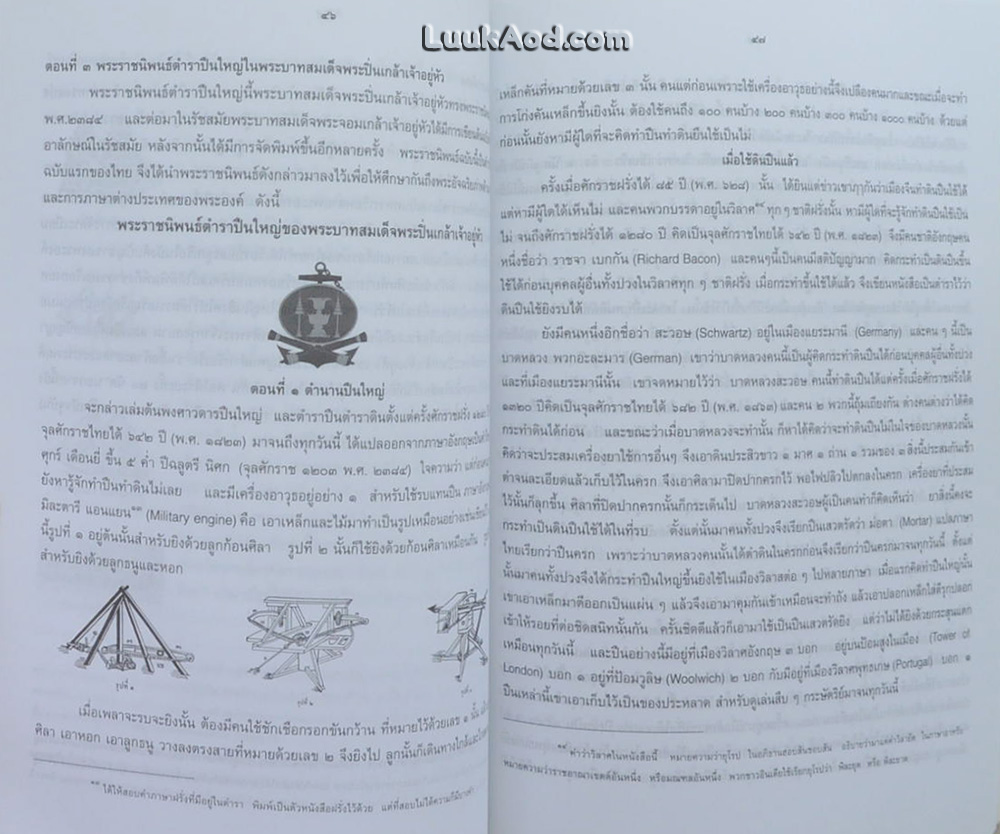 LuukAod.com
๔๖
ตอนที่ ๓ พระราชนิพนธ์ตำราปืนใหญ่ในพระบาทสมเด็จพระปิ่นเกล้าเจ้าอยู่หัว
พระราชนิพนธ์ตำราปืนใหญ่นี้พระบาทสมเด็จพระปิ่นเกล้าเจ้าอยู่หัวทรงพระราช
พ.ศ.๒๓๘๔ และต่อมาในรัชสมัยพระบาทสมเด็จพระจอมเกล้าเจ้าอยู่หัวได้มีการเขียน
อาลักษณ์ในรัชสมัย หลังจากนั้นได้มีการจัดพิมพ์ขึ้นอีกหลายครั้ง พระราชนิพนธ์ฉบับนี้
ฉบับแรกของไทย จึงได้นำพระราชนิพนธ์ดังกล่าวมาลงไว้เพื่อให้ศึกษากันถึงพระอัจฉริย
และการภาษาต่างประเทศของพระองค์ ดังนี้
พระราชนิพนธ์ตำราปืนใหญ่ของพระบาทสมเด็จพระปิ่นเกล้าเจ้าอยู่หัว
ตอนที่ ๑ ตำนานปืนใหญ่
จะกล่าวเล่มต้นพงศาวดารปืนใหญ่ และตำราปืนตำราดินตั้งแต่ครั้งศักราชฝรั่ง
จุลศักราชไทยได้ ๖๔๒ ปี (พ.ศ. ๑๘๒๓) มาจนถึงทุกวันนี้ ได้แปลออกจากภาษาอังกฤษ
ศุกร์ เดือนยี่ ขึ้น ๕ ค่ำ ปีฉลูตรี นิศก (จุลศักราช ๑๒๐๓ พ.ศ. ๒๓๘๔) ใจความว่า
ยังหารู้จักทำปืนทำดินไม่เลย และมีเครื่องอาวุธอยู่อย่าง ๑ สำหรับใช้รบแทนปืน
มิละตารี แอนแยน** (Military engine) คือ เอาเหล็กและไม้มาทำเป็นรูปเหมือนอย่างเช่นเขียน
นี้รูปที่ ๑ อยู่ต้นนั้นสำหรับยิงด้วยลูกก้อนศิลา รูปที่ ๒ นั้นก็ใช้ยิงด้วยก้อนศิลาเหมือนกัน
สำหรับยิงด้วยลูกธนูและหอก
รูปที่ ๑
รูปที่ ๒
เมื่อเพลาจะรบจะยิงนั้น ต้องมีคนใช้ชักเชือกรอกขันกว้าน ที่หมายไว้ด้วยเลข ๑ นั้น
ศิลา เอาหอก เอาลูกธนู วางลงตรงสายที่หมายด้วยเลข ๒ จึงยิงไป ลูกนั้นก็เดินทางใกล้และไกล
** ได้ให้สอบคำภาษาฝรั่งที่มีอยู่ในตำรา พิมพ์เป็นตัวหนังสือฝรั่งไว้ด้วย แต่ที่สอบไม่ได้ความก็มี
๔๗
เหล็กคันที่หมายด้วยเลข ๓ นั้น คนแต่ก่อนเพราะใช้เครื่องอาวุธอย่างนี้จึงเปลืองคนมากและขณะเมื่อจะทำ
การโก่งคันเหล็กขึ้นยิงนั้น ต้องใช้คนถึง ๑๐๐ คนบ้าง ๒๐๐ คนบ้าง ๓๐๐ คนบ้าง ๑๐๐๐ คนบ้าง ด้วยแต่
ก่อนนั้นยังหามีผู้ใดที่จะคิดทำปืนทำดินยืนใช้เป็นไม่
เมื่อใช้ดินปืนแล้ว
ครั้งเมื่อศักราชฝรั่งได้ ๘๕ ปี (พ.ศ. ๖๒๘) นั้น ได้ยินแต่ข่าวเขาฦๅกันว่าเมืองจีนทำดินปืนใช้ได้
แต่หามีผู้ใดได้เห็นไม่ และคนพวกบรรดาอยู่ในวิลาศ** ทุก ๆ ชาติฝรั่งนั้น หามีผู้ใดที่จะรู้จักทำดินปืนใช้เป็น
ไม่ จนถึงศักราชฝรั่งได้ ๑๒๘๐ ปี คิดเป็นจุลศักราชไทยได้ ๖๔๒ ปี (พ.ศ. ๑๘๒๓) จึงมีคนชาติอังกฤษคน
หนึ่งชื่อว่า ราชจา เบกกัน (Richard Bacon) และคนๆนี้เป็นคนมีสติปัญญามาก คิดกระทำเป็นดินปืนขึ้น
ใช้ได้ก่อนบุคคลผู้อื่นทั้งปวงในวิลาศทุก ๆ ชาติฝรั่ง เมื่อกระทำขึ้นใช้ได้แล้ว จึงเขียนหนังสือเป็นตำราไว้ว่า
ดินปืนใช้ยิงรบได้
ยังมีคนหนึ่งอีกชื่อว่า สะวอษ (Schwartz) อยู่ในเมืองแยระมานี (Germany) และคน ๆ นี้เป็น
บาดหลวง พวกอะละมาร (German) เขาว่าบาดหลวงคนนี้เป็นผู้คิดกระทำดินปืนได้ก่อนบุคคลผู้อื่นทั้งปวง
และที่เมืองแยระมานีนั้น เขาจดหมายไว้ว่า บาดหลวงสะวอษ คนนี้ทำดินปืนได้แต่ครั้งเมื่อศักราชฝรั่งได้
๑๓๒๐ ปีคิดเป็นจุลศักราชไทยได้ ๖๘๒ ปี (พ.ศ. ๑๘๖๓) และคน ๒ พวกนี้ถุ้มเถียงกัน ต่างคนต่างว่าได้คิด
กระทำดินได้ก่อน และขณะว่าเมื่อบาดหลวงจะทำนั้น ก็หาได้คิดว่าจะทำดินปืนไม่ในใจของบาดหลวงนั้น
คิดว่าจะประสมเครื่องยาใช้การอื่นๆ จึงเอาดินประสิวขาว ๑ มาศ ๑ ถ่าน ๑ รวมของ ๓ สิ่งนี้ประสมกันเข้า
ตำจนละเอียดแล้วเก็บไว้ในครก จึงเอาศิลามาปิดปากครกไว้ พอไฟปลิวไปตกลงในครก เครื่องยาที่ประสม
ไว้นั้นก็ลุกขึ้น ศิลาที่ปิดปากครกนั้นก็กระเด็นไป บาดหลวงสะวอษผู้เป็นคนทำก็คิดเห็นว่า ยาสิ่งนี้คงจะ
กระทำเป็นดินปืนใช้ได้ในที่รบ ตั้งแต่นั้นมาคนทั้งปวงจึงเรียกปืนเสวตรัดว่า ม่อตา (Mortar) แปลภาษา
ไทยเรียกว่าปืนครก เพราะว่าบาดหลวงคนนั้นได้ตำดินในครกก่อนจึงเรียกว่าปืนครกมาจนทุกวันนี้ ตั้งแต่
นั้นมาคนทั้งปวงจึงได้กระทำปืนใหญ่ขึ้นยิงใช้ในเมืองวิลาสต่อ ๆ ไปหลายภาษา เมื่อแรกคิดทำปืนใหญ่นั้น
เขาเอาเหล็กมาตีออกเป็นแผ่น ๆ แล้วจึงเอามาคุมกันเข้าเหมือนจะทำถัง แล้วเอาปลอกเหล็กใส่ตีรุกปลอก
เข้าให้รอยที่ต่อชิดสนิทนั้นกัน ครั้นชิดดีแล้วก็เอามาใช้เป็นปืนเสวตรัดยิง แต่ว่าไม่ได้ยิงด้วยกระสุนแตก
เหมือนทุกวันนี้ และปืนอย่างนี้มีอยู่ที่เมืองวิลาศอังกฤษ ๓ บอก อยู่บนป้อมสูงในเมือง (Tower of
London) บอก ๑ อยู่ที่ป้อมวูลิษ (Woolwich) ๒ บอก กับมีอยู่ที่เมืองวิลาศพุทธเกษ (Portugal) บอก ๑
ปืนเหล่านี้เขาเอาเก็บไว้เป็นของประหลาด สำหรับดูเล่นสืบ ๆ กระษัตริย์มาจนทุกวันนี้
** คำว่าวิลาศในหนังสือนี้ หมายความว่ายุโรป
หมายความว่าราชอาณาเขตต์อันหนึ่ง หรือมณฑลอันหนึ่ง พวกชาวอินเดียใช้เรียกยุโรปว่า